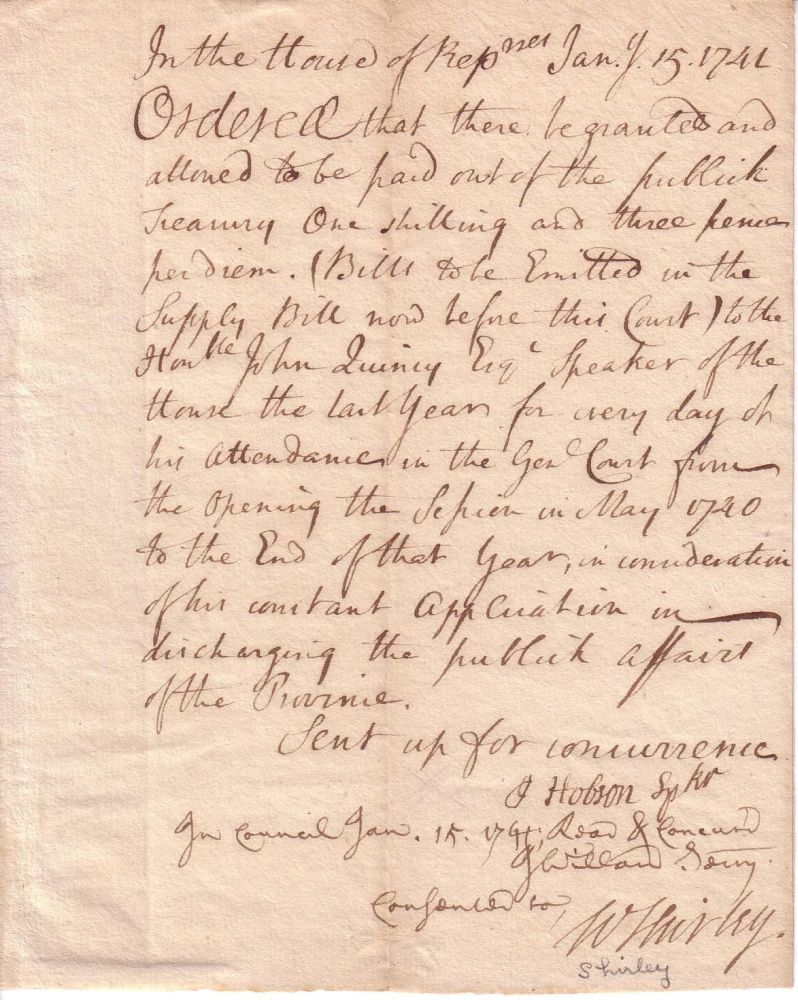 In the House of Rep^nves Jan.y. 15. 1741
Ordered that there be granted and
allowed to be paid out of the publick
Treasury One shilling and three pence
per diem. (Bills to be Emitted in the
Supply Bill now before this Court) to the
Hon^ble John Quincy Esq^r Speaker of the
House the last Year for every day of
his Attendance in the Gen^l Court from
the Opening the Session in May 1740
to the End of that Year, in consideration
of his constant Application in
discharging the publick affairs
of the Province.
Sent up for concurrence
J Hobson Spk^r
In Council Jan. 15. 1741; Read & Concurd
J Willard Secry.
Consented to,
W Shirley.
Shirley